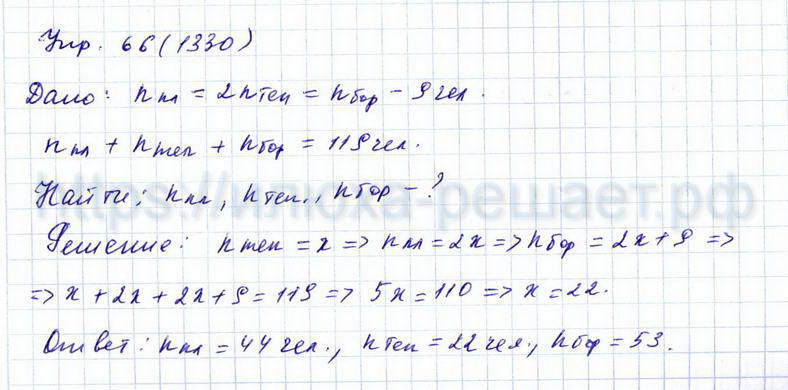 Упр. 66(1330)
Дано: nпл = 2nтен = nбор - 9чел.
nпл + nтен + nбор = 119чел.
Найти: nпл, nтен., nбор - ?
https://илюха-решает.рф
Решение: nтен = x => nпл = 2x => nбор = 2x + 9 =>
=> x + 2x + 2x + 9 = 119 => 5x = 110 => x = 22.
Ответ: nпл = 44чел., nтен = 22чел., nбор = 53.